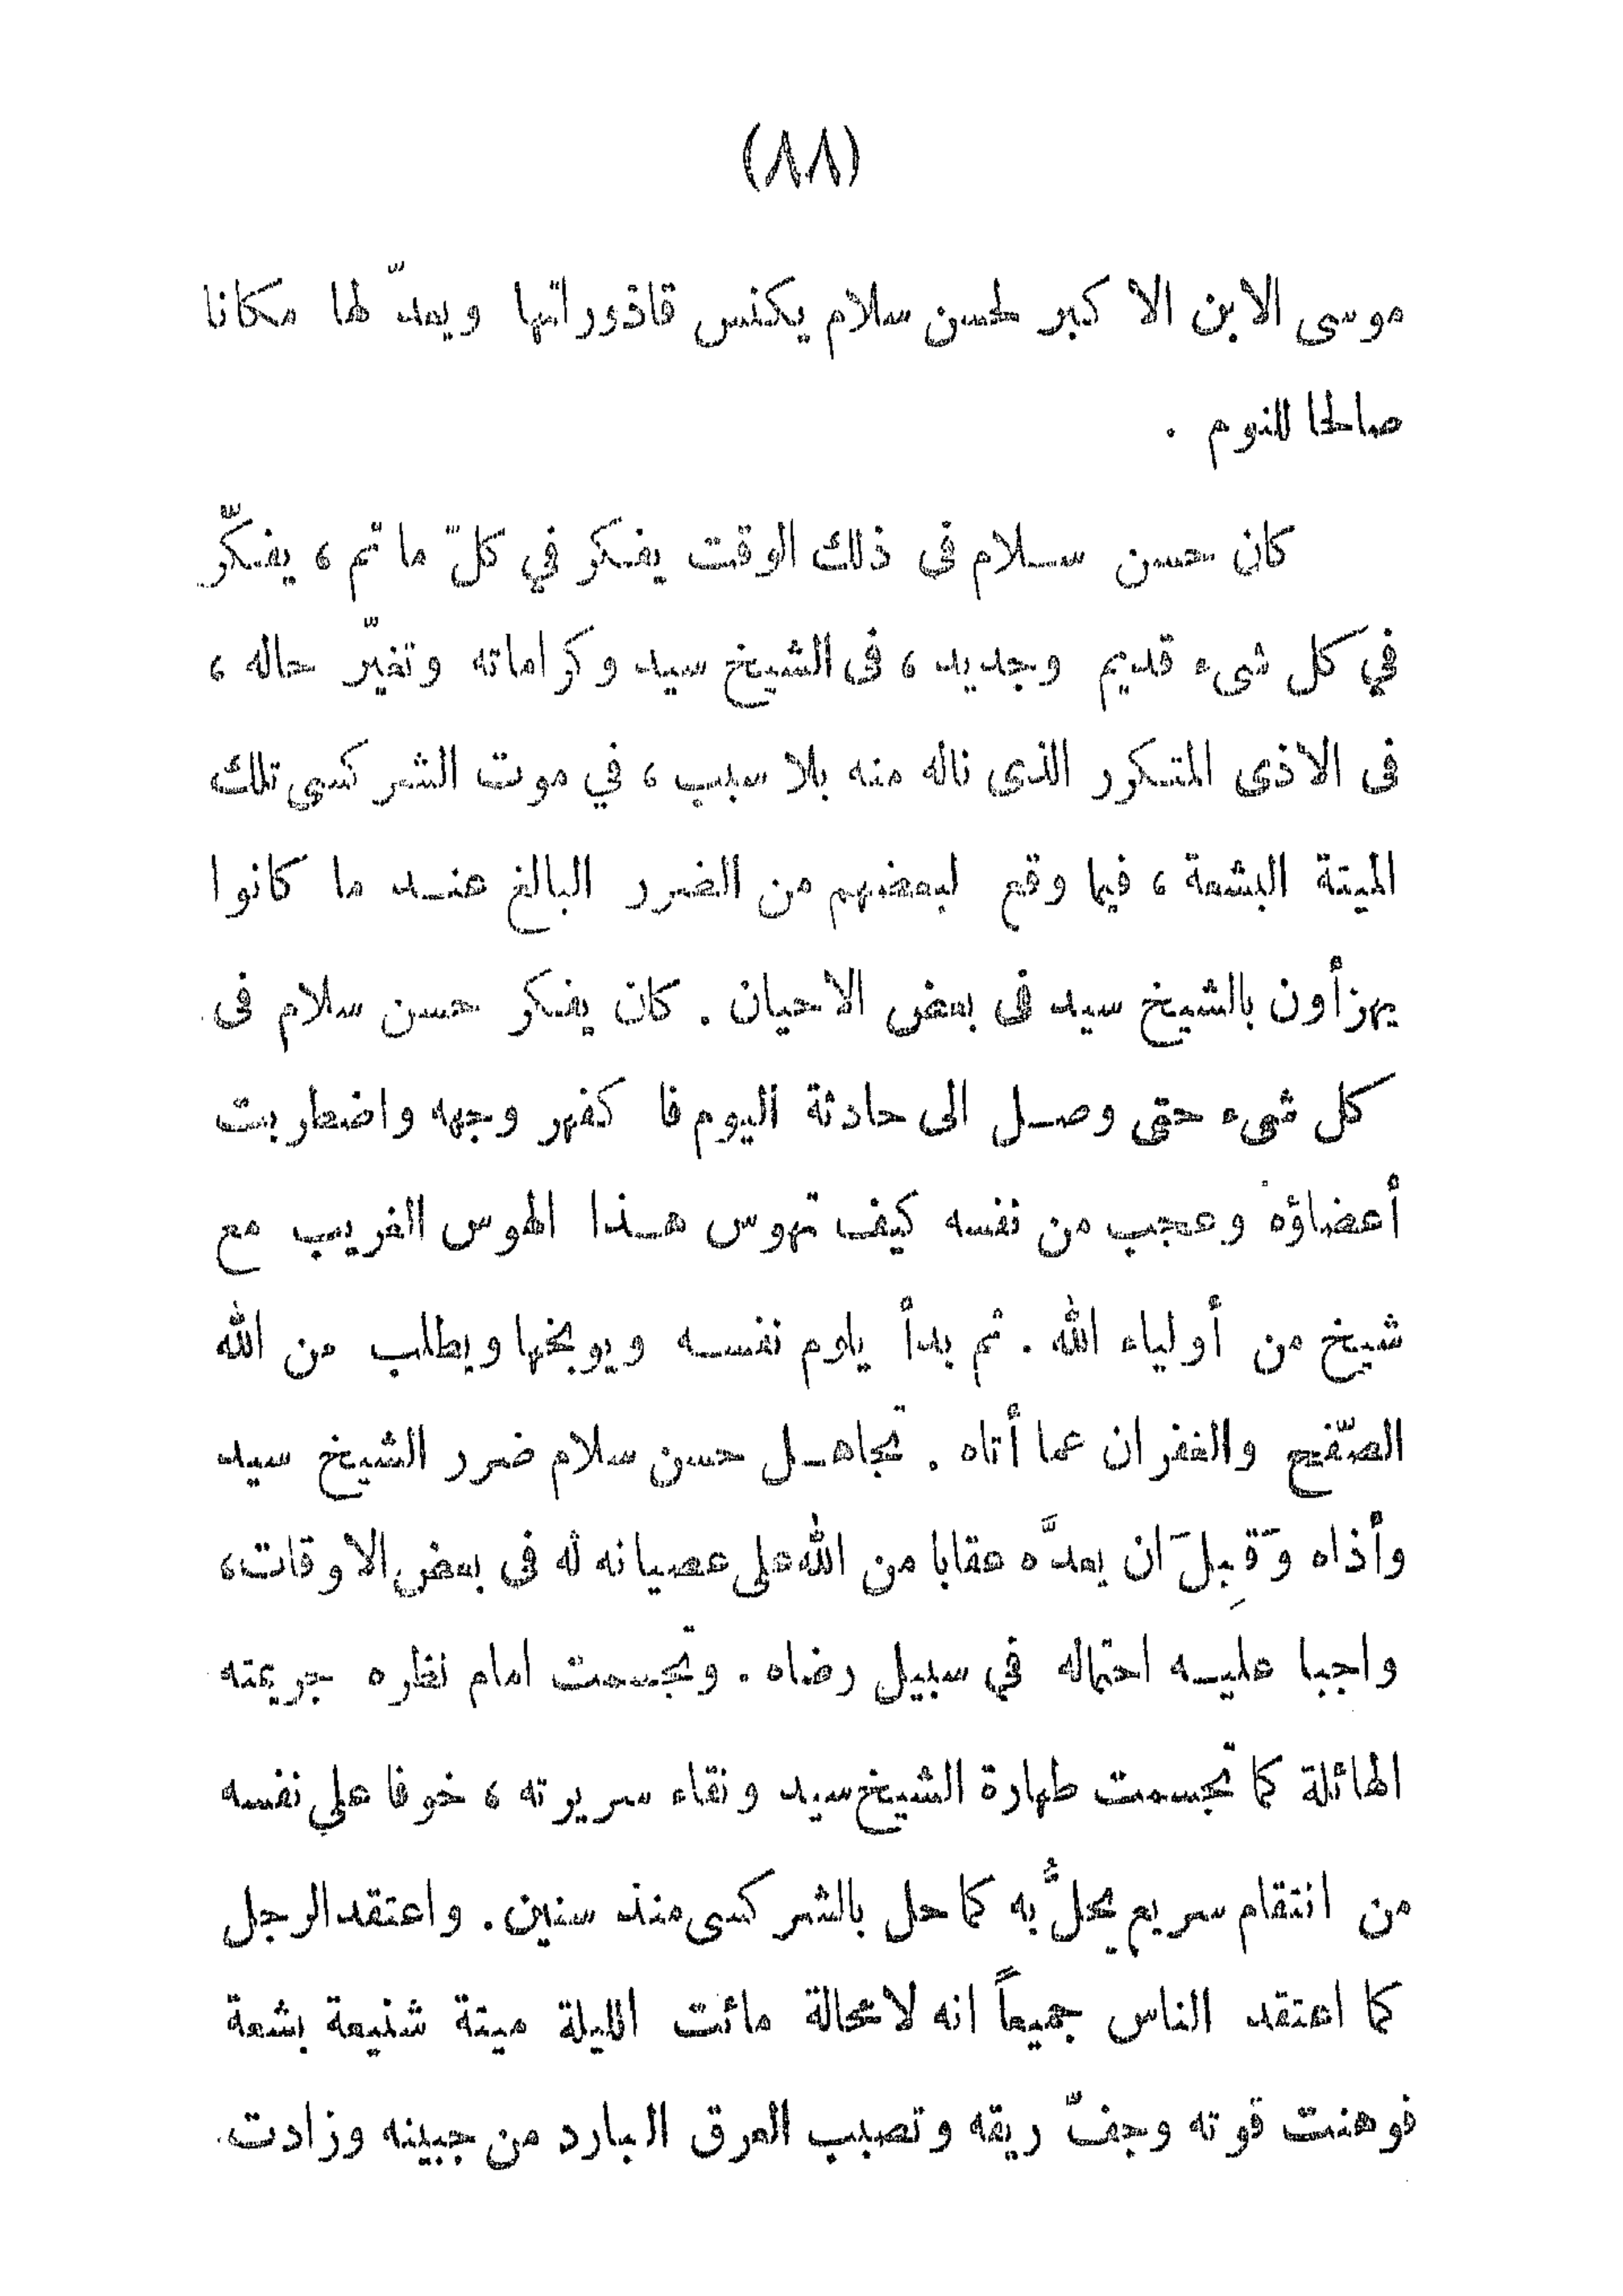 (٨٨)
موسى الابن الاكبر لحسن سلام يكنس قاذوراتها ويعدّ لها مكانا
صالحا للنوم .
كان حسن سلام فى ذلك الوقت يفكر في كلّ ما تم ، يفكّر
في كل شىء قديم وجديد ، فى الشيخ سيد وكراماته وتغيّر حاله ،
فى الاذى المتكرر الذى ناله منه بلا سبب ، في موت الشركسى تلك
الميتة البشعة ، فيما وقع لبعضهم من الضرر البالغ عند ما كانوا
يهزأون بالشيخ سيد فى بعض الاحيان . كان يفكر حسن سلام فى
كل شىء حتى وصل الى حادثة اليوم فاكفهر وجهه واضطربت
أعضاؤه وعجب من نفسه كيف تهوس هذا الهوس الغريب مع
شيخ من أولياء الله . ثم بدأ يلوم نفسه ويوبخها ويطلب من الله
الصّفح والغفران عما أتاه . تجاهل حسن سلام ضرر الشيخ سيد
وأذاه وَقَبِلَ ان يعدَّه عقابا من الله على عصيانه له فى بعض الاوقات،
واجبا عليه احتماله في سبيل رضاه . وتجسمت امام نظره جريمته
الهائلة كما تجسمت طهارة الشيخ سيد ونقاء سريرته ، خوفا علي نفسه
من انتقام سريع يحلُّ به كما حل بالشركسى منذ سنين . واعتقد الرجل
كما اعتقد الناس جميعاً انه لا محالة مائت الليلة ميتة شنيعة بشعة
فوهنت قوته وجفّ ريقه وتصبب العرق البارد من جبينه وزادت